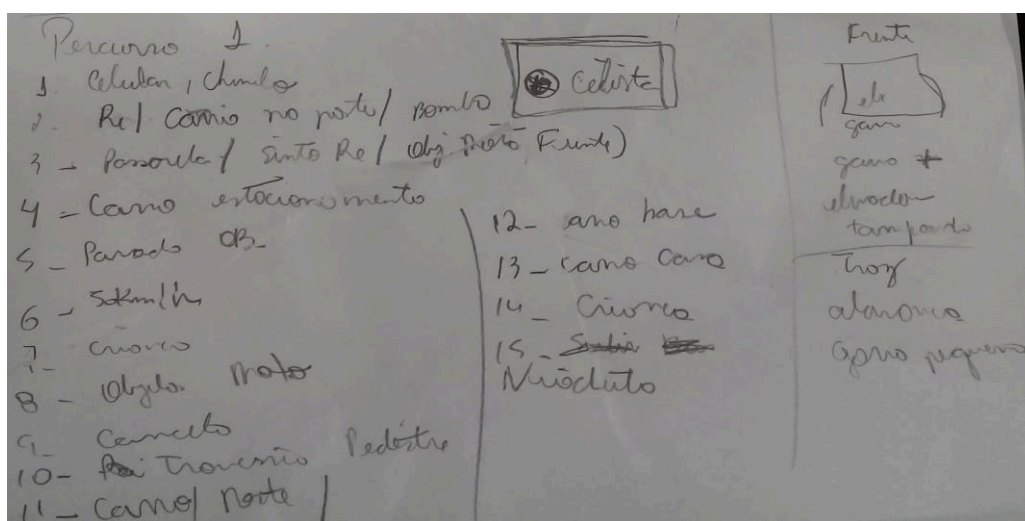 Percurso 1.
1. Celular, Chinelo
2. Ré / Carrio no poste / Bombo
Celista
3 - Passarela / Sinto Ré / Obj Frente)
4 - Carro estacionamento
5 - Parado OB-
6 - 50km/h
7 - criança
8 - Objeto. Moto
9 - Cancela
10- Travessia Pedestre
11 - Carro / Poste /
12- ano base
13 - carro Casa
14 - Criança
15 -
Viaduto
Frente
ele
gano
gano +
elevador
tampado
Traz
alavanca
gano pequeno